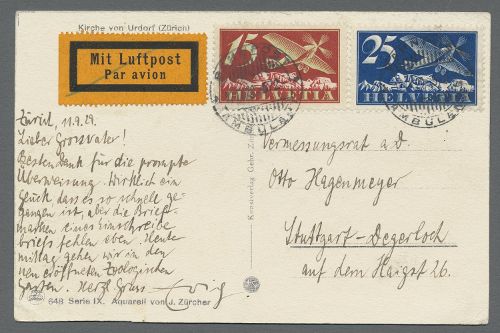 Kirche von Urdorf (Zürich)
Mit Luftpost
Par avion
15
HELVETIA
25
HELVETIA
AMBULANT
Zürich, 11.9.29.
Lieber Grossvater!
Besten Dank für die prompte
Überweisung. Wirklich ein
Glück, dass es so schnell ge-
gangen ist, aber die Brief-
marken eines Einschreibe
briefs fehlen eben. Heute
mittag gehen wir in den
neu eröffneten Zoologischen
Garten. Herzl. Gruss
Vermessungsrat a.D.
Otto Hagenmeyer
Stuttgart-Degerloch
auf dem Haigst 26.
648 Serie IX. Aquarell von J. Zürcher